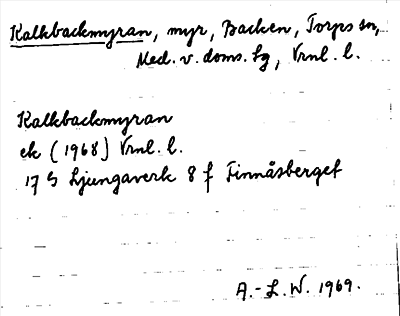 Kalkbackmyran, myr, Backen, Torps sn,
Med. v. doms. sg, Vrnl. l.
Kalkbackmyran
ek (1968) Vrnl. l.
17 G Ljungaverk 8 f Finnåsberget
A.-L.W. 1969.